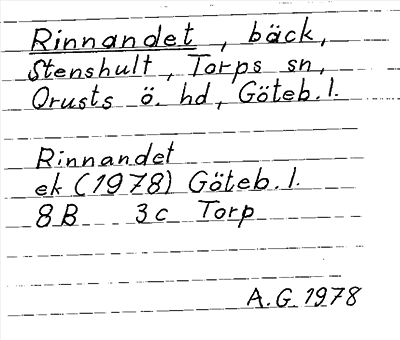 Rinnandet, bäck,
Stenshult, Torps sn,
Orusts ö. hd, Göteb.l.
Rinnandet
ek (1978) Göteb.l.
8B 3c Torp
A.G. 1978